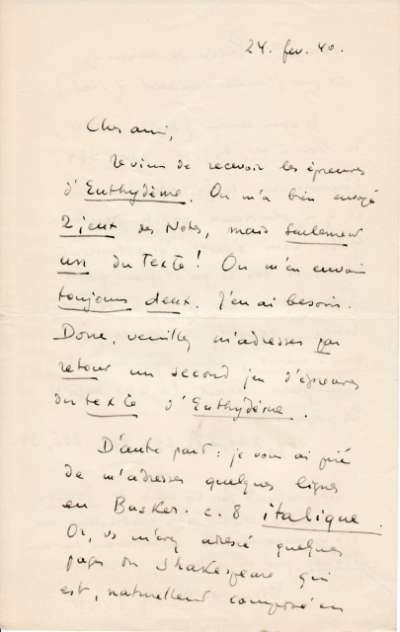 24. fev. 40.
Cher ami,
Je viens de recevoir les épreuves
d'Enthydème. On m'a bien envoyé
2 jeux des Notes, mais seulement
un du Texte! On m'en envoie
toujours deux. J'en ai besoin.
Donc, veuillez m'adresser par
retour un second jeu d'épreuves
du texte d'Enthydème.
D'autre part: je vous ai prié
de m'adresser quelques lignes
en Basker. c. 8 italique.
Or, vs m'avez adressé quelques
pages du Shakespeare qui
est, naturellement composé en